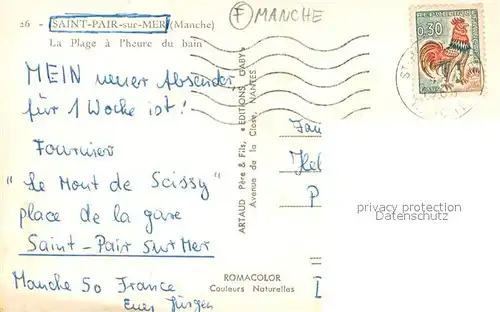 26 - SAINT-PAIR-sur-MER (Manche)
La Plage à l'heure du bain
F MANCHE
0,30
MEIN neuer Absender,
für 1 Woche ist!
Fournier
"Le Mont de Scissy"
place de la gare
Saint-Pair sur Mer
Manche 50 France
Euer Jürgen
ARTAUD Père & Fils, «EDITIONS GABY»
Avenue de la Close, NANTES
ROMACOLOR
Couleurs Naturelles
privacy protection
Datenschutz